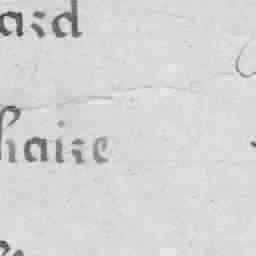 ard
haire